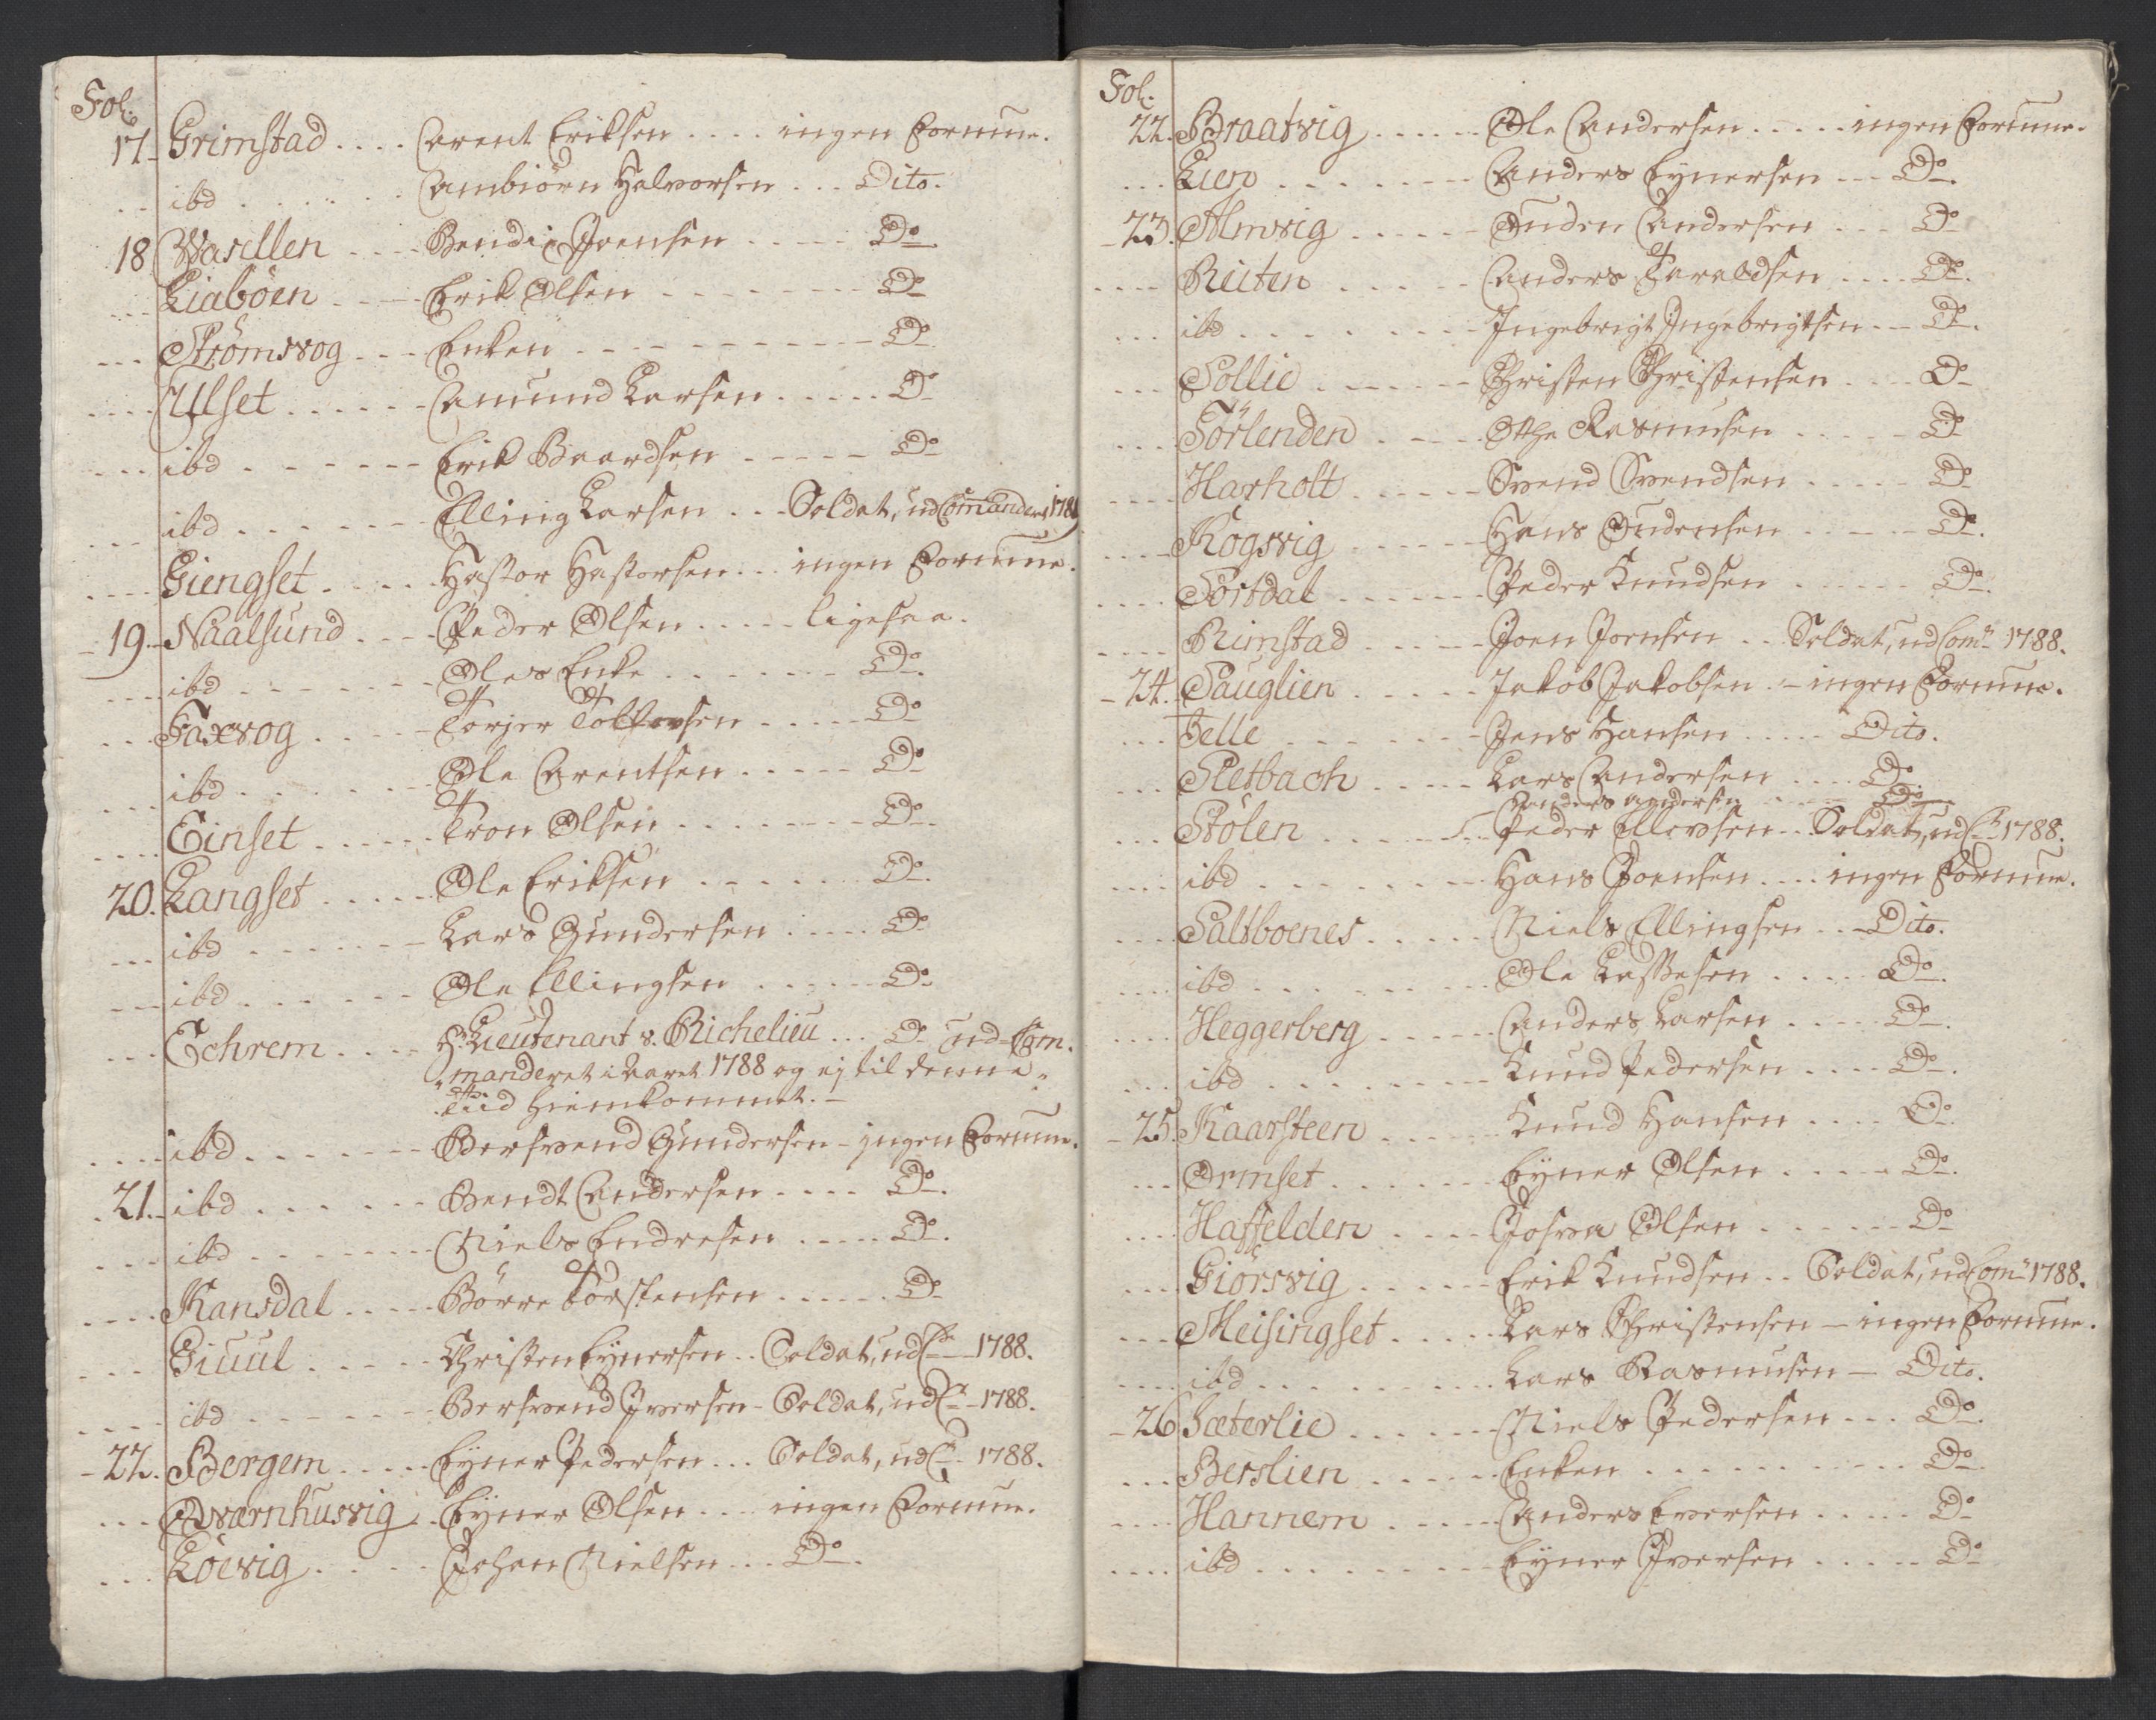 Fol.
17. Grimstad .... Arent Eriksen .... ingen Formue.
... ibd ...... Ambiörn Halvorsen ... Dito.
18 Wasillen .... Bendix Joensen ..... Do
... Liabøen .... Erik Olsen ....... Do
... Strömsvog ... Enken .......... Do
.... Ulset ...... Amund Larsen ..... Do
.... ibd ....... Erik Baardsen ..... Do
... ibd ...... Elling Larsen ... Soldat, udComanderet 1788
.... Giengset ..... Hastor Hastorsen ... ingen Formue.
19. Naalsund .... Peder Olsen ..... ligesaa.
... ibd ....... Oles Enke ....... Do.
... Faxvog ..... Torjer Tolfsen ..... Do
... ibd ....... Ole Arentsen ..... Do
.... Einset ...... Tron Olsen ........ Do.
20. Langset ..... Ole Eriksen ...... Do.
... ibd ....... Lars Gundersen ..... Do
... ibd ...... Ole Ellingsen ..... Do.
... Echrem .... Hr Lieutenant v. Richelieu ... Do ud-Com-
manderet i Aaret 1788 og ej til denne
Tiid hiemkommet.-
.... ibd ...... Bersvend Gundersen - ingen Formue.
.21. ibd ...... Bendt Andersen .... Do.
... ibd ....... Niels Endresen ..... Do.
.... Kansdal ..... Börre Torstensen ...... Do
... Giuul ..... Christen Eynersen .. Soldat, udC 1788.
... ibd ...... Bersvend Iversen - Soldat, udC 1788.
- 22. Bergem ..... Eyner Pedersen ... Soldat, udC 1788.
... Qværnhusvig . Eyner Olsen ... ingen Formue.
... Löevig ..... Johan Nielsen ... Do.
Fol.
22. Braatvig ...... Ole Andersen ..... ingen Formue.
... Lien ....... Anders Eynersen ... Do.
- 23. Almvig ..... Ouden Andersen ... Do
.... Reiten ..... Anders Taraldsen .... Do.
... ibd ........ Ingebrigt Ingebrigtsen ... Do.
... Sollie ...... Christen Christensen ... Do
.... Törlenden .... Othe Rasmusen ..... Do
.... Harholt ..... Svend Svendsen ..... Do
.... Rogsvig ..... Hans Oudensen ..... Do.
.... Tortdal ...... Peder Knudsen ..... Do.
.... Rimstad ..... Joen Joensen .. Soldat, udCom 1788.
- 24. Sauglien ..... Jakob Jakobsen .- ingen Formue.
... Telle ....... Jens Hansen ..... Dito.
... Sletbach ..... Lars Andersen .... Do.
Anders Andersen ..... Do
... Stölen ...... Peder Ellevsen .. Soldat, udC 1788.
.... ibd ....... Hans Joensen .... ingen Formue.
.... Saltboenes ..... Niels Ellingsen .. Dito.
.... ibd ........ Ole Lassesen ..... Do.
.... Heggerberg ..... Anders Larsen .... Do.
... ibd ........ Knud Pedersen .... Do.
- 25. Kaarsteen ..... Knud Hansen .... Do.
... Ormset ...... Eyner Olsen ..... Do.
.... Haffelden .... Josva Olsen ...... Do
... Giörsvig ...... Erik Knudsen .. Soldat, udCom 1788.
... Meisingset ..... Lars Christensen - ingen Formue.
.... ibd ........ Lars Rasmusen - Dito.
- 26 Sæterlie ...... Niels Pedersen ... Do.
... Berslien ..... Enken .......... Do.
.... Hannem ..... Anders Eversen ..... Do
.... ibd ........ Eyner Iversen ..... Do